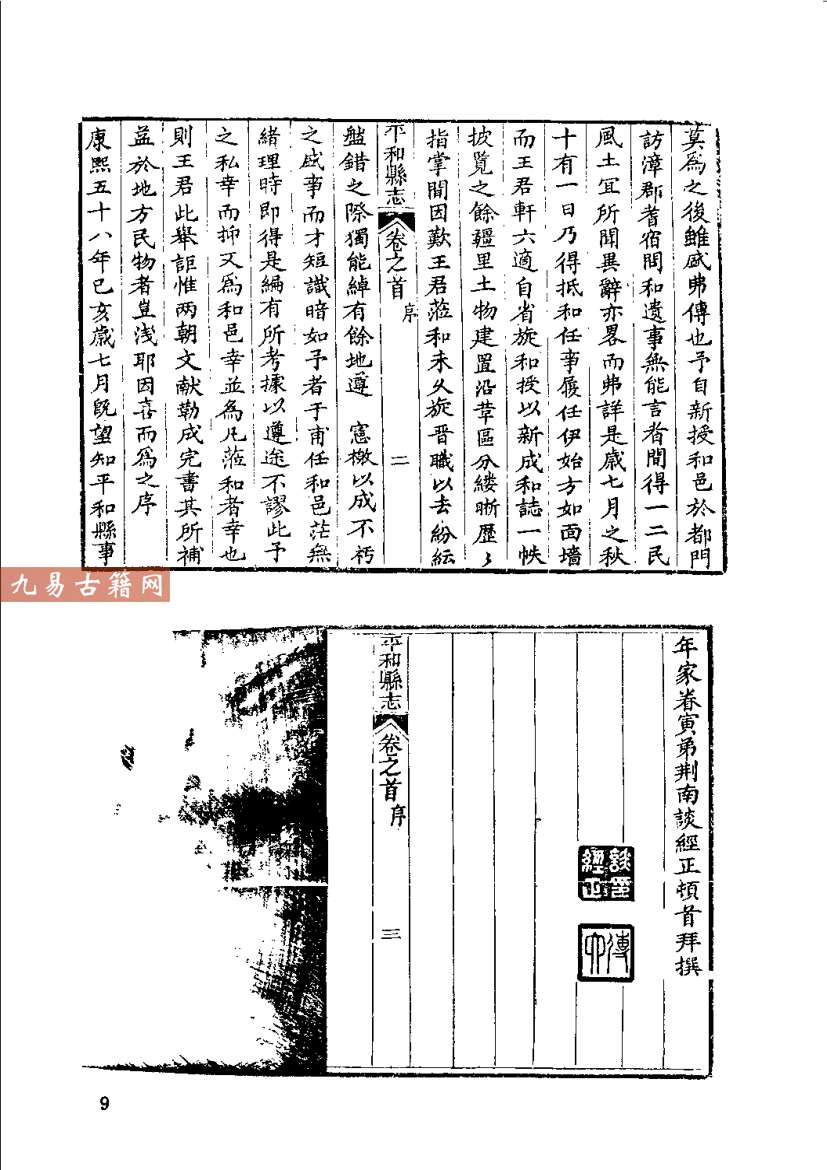 莫爲之後雖盛弗傳也予自新授和邑於都門
訪漳郡耆宿間和遺事無能言者間得一二民
風土宜所聞異辭亦畧而弗詳是歲七月之秋
十有一日乃得抵和任事履任伊始方如面墻
而王君軒六適自省旋和授以新成和誌一帙
披覧之餘疆里土物建置沿革區分縷晰歷〻
指掌間因歎王君蒞和未久旋晋職以去紛紜
平和縣志
卷之首
序
二
盤錯之際獨能綽有餘地遵 憲檄以成不朽
之盛事而才短識暗如予者于甫任和邑茫無
緒理時即得是編有所考據以遵途不謬此予
之私幸而抑又爲和邑幸並爲凡蒞和者幸也
則王君此舉詎惟两朝文献勒成完書其所補
益於地方民物者豈浅耶因喜而爲之序
康熙五十八年已亥歲七月旣望知平和縣事
九易古籍网
年家眷寅弟荆南談經正頓首拜撰
談印
經正
平和縣志
卷之首
序
三
9